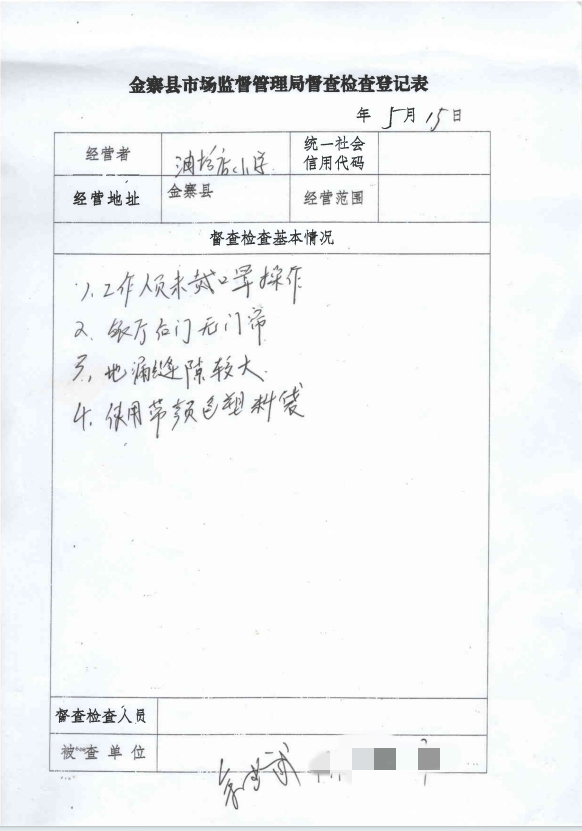 金寨县市场监督管理局督查检查登记表
年 5月 15日
经营者 油坊店小学 统一社会信用代码
经营地址 金寨县 经营范围
督查检查基本情况
1、工作人员未戴口罩操作
2、餐厅后门无门帘
3、地漏缝隙较大
4、使用带颜色塑料袋
督查检查人员
被查单位